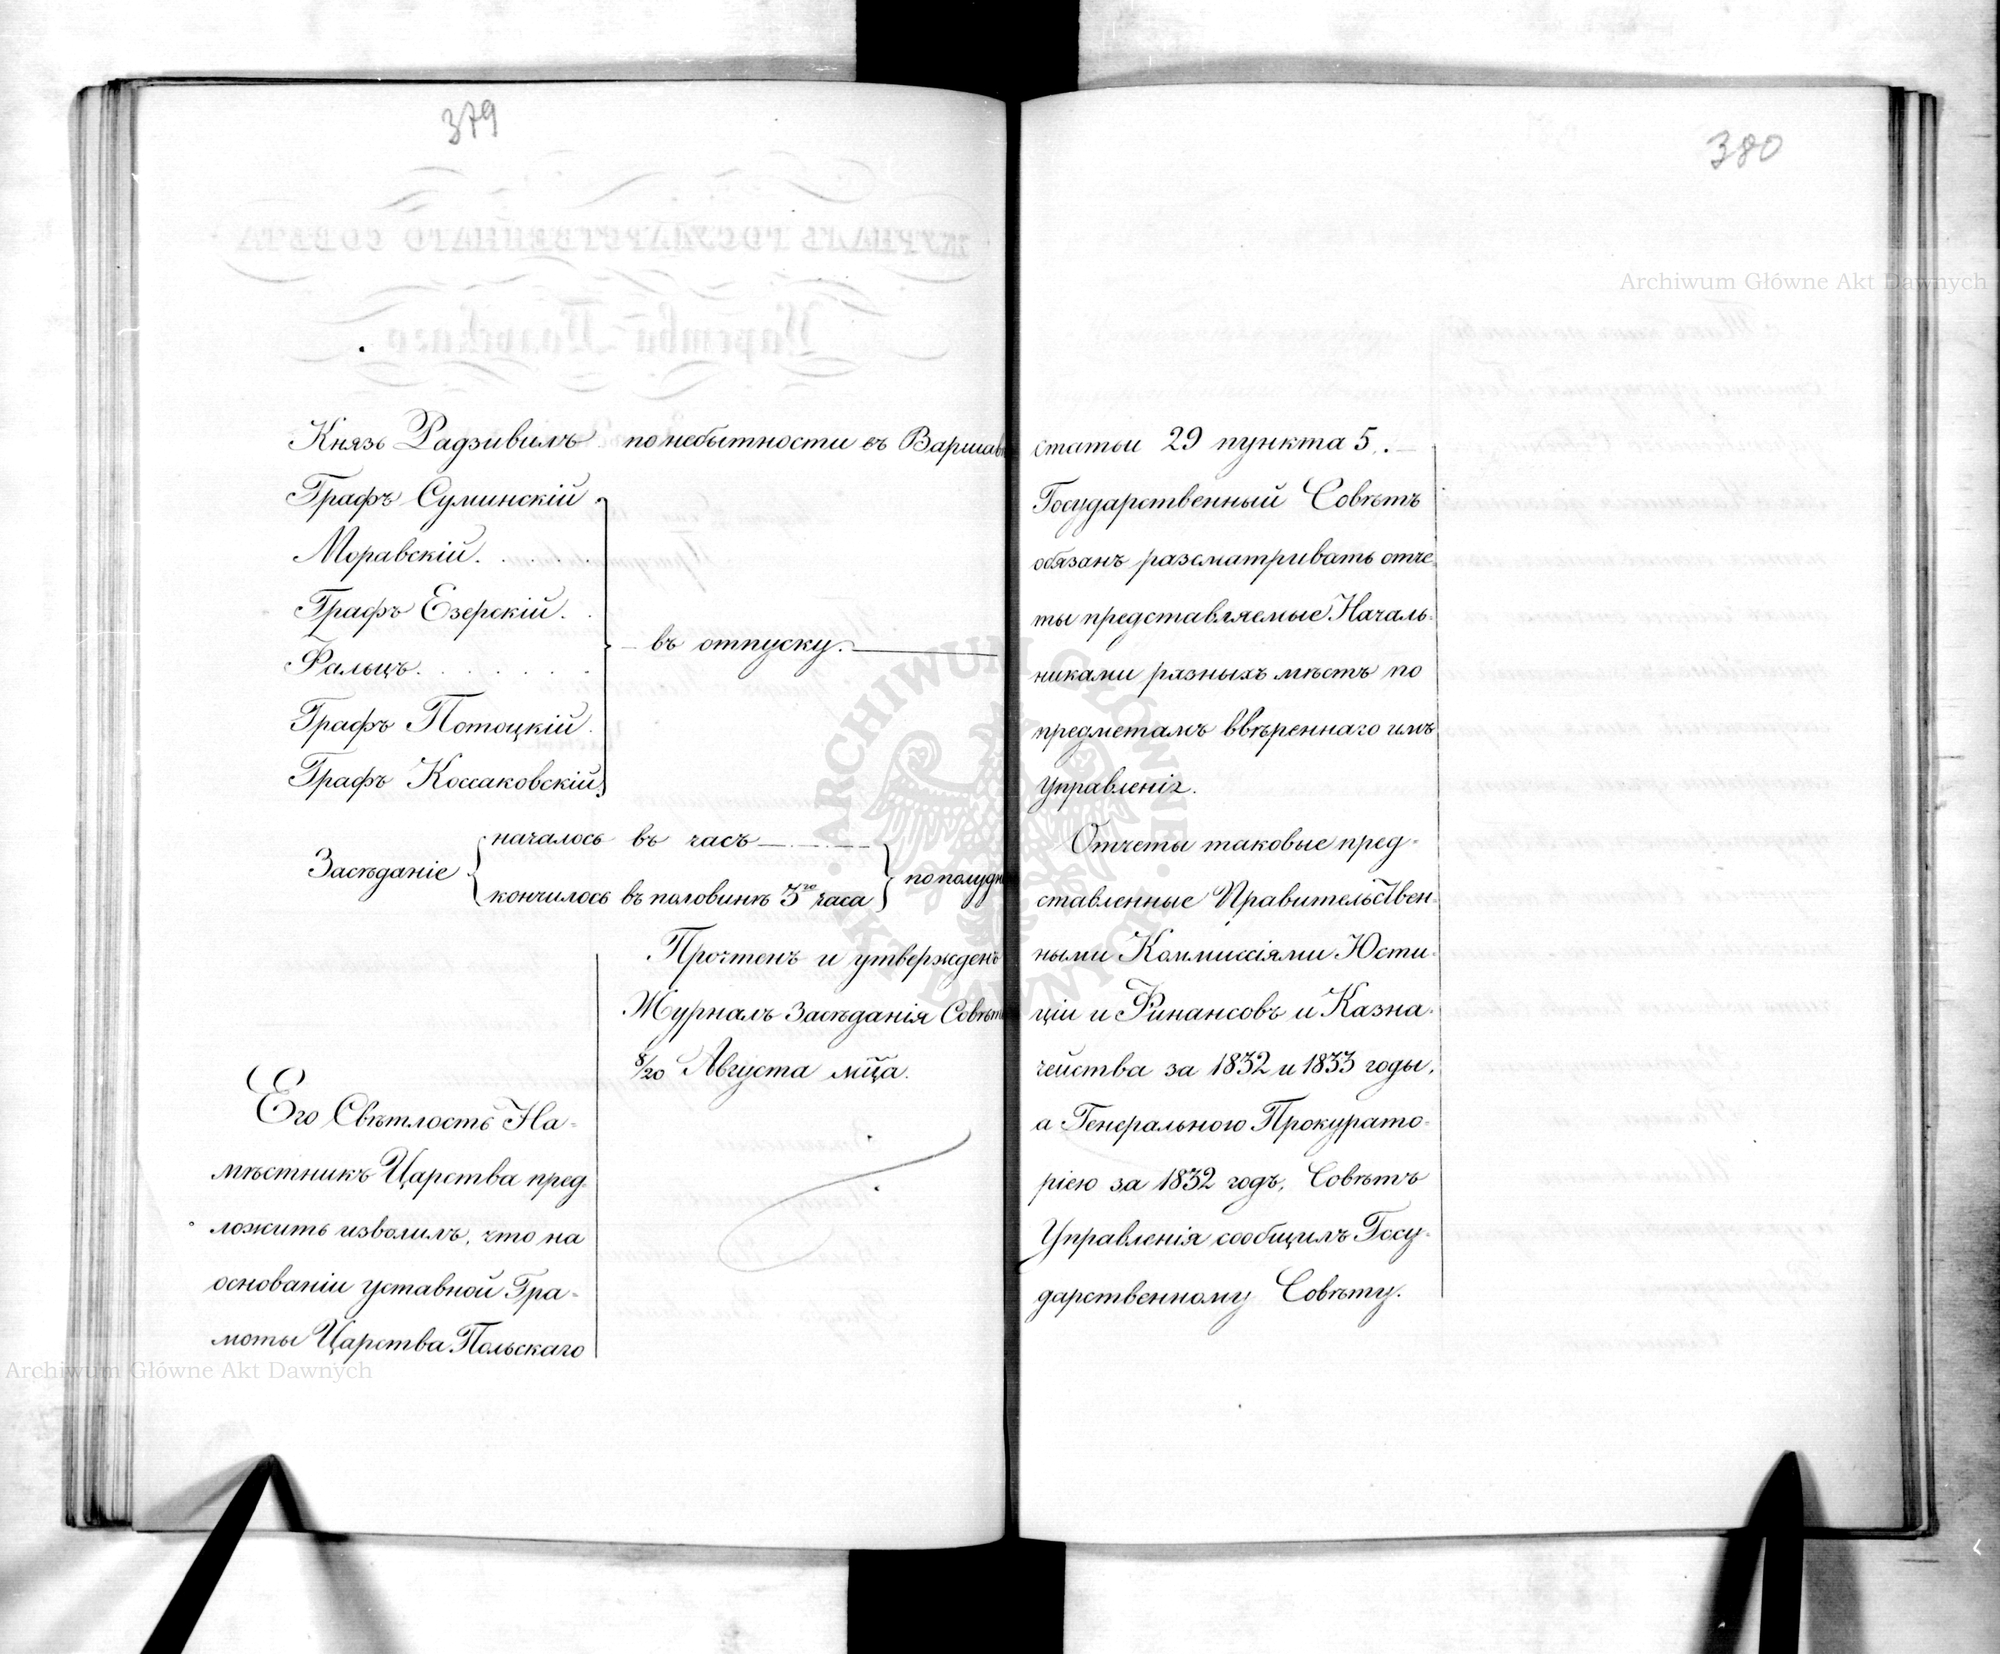 379
Князь Радзивилъ по небытности въ Варшавѣ
Графъ Суминскій
Моравскій.
Графъ Езерскій.
Фальцъ.
Графъ Потоцкій.
Графъ Коссаковскій
въ отпуску.
Засѣданіе
началось въ часъ
кончилось въ половинѣ 3го часа
по полудн
Прочтенъ и утвержденъ
Журналъ Засѣданія Совѣта
8/20 Августа мца.
Его Свѣтлость На=
мѣстникъ Царства пред
ложить изволилъ, что на
основаніи уставной Гра=
моты Царства Польскаго
380
статьи 29 пункта 5.
Государственный Совѣтъ
обязанъ разсматривать отче
ты представляемые Началь=
никами разныхъ мѣстъ по
предметамъ ввѣреннаго имъ
управленія.
Отчеты таковые пред=
ставленные Правительствен
ными Коммиссіями Юсти=
ціи и Финансовъ и Казна=
чейства за 1832 и 1833 годы,
а Генерального Прокурато=
ріею за 1832 годъ, Совѣтъ
Управленія сообщилъ Госу=
дарственному Совѣту.
Archiwum Główne Akt Dawnych
Archiwum Główne Akt Dawnych
ARCHIWUM GŁÓWNE AKT DAWNYCH